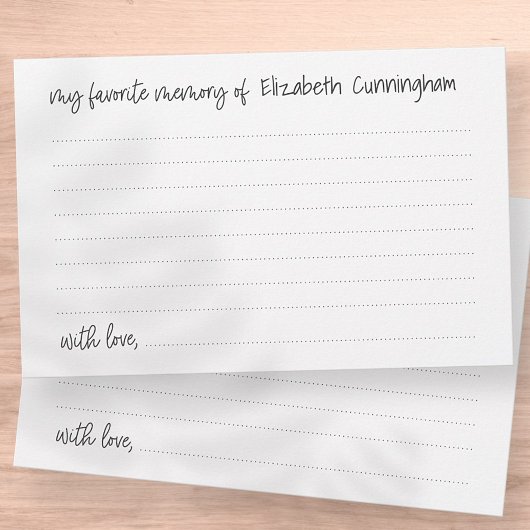 my favorite memory of Elizabeth Cunningham
with love,
with love,